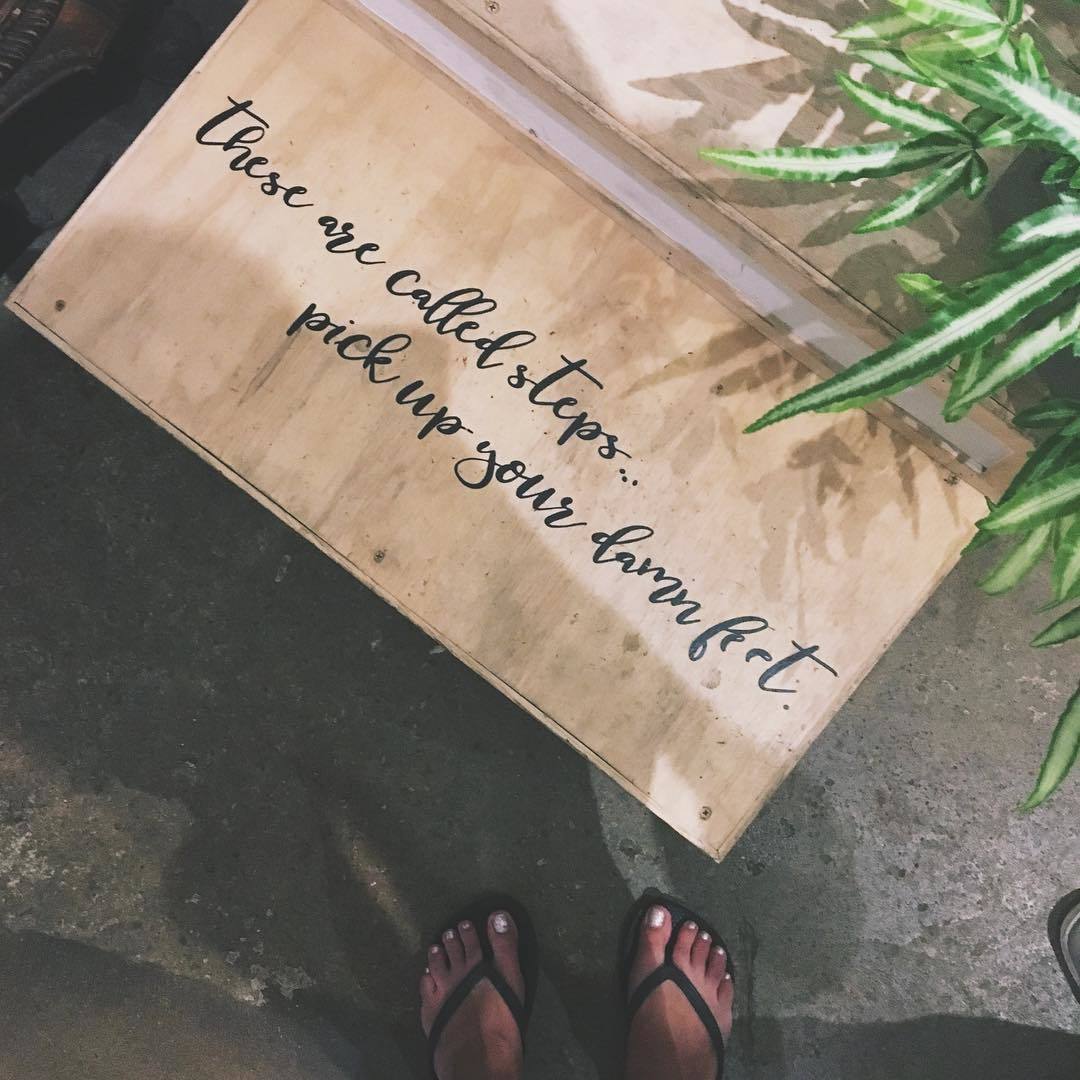 these are called steps...
pick up your damn feet.